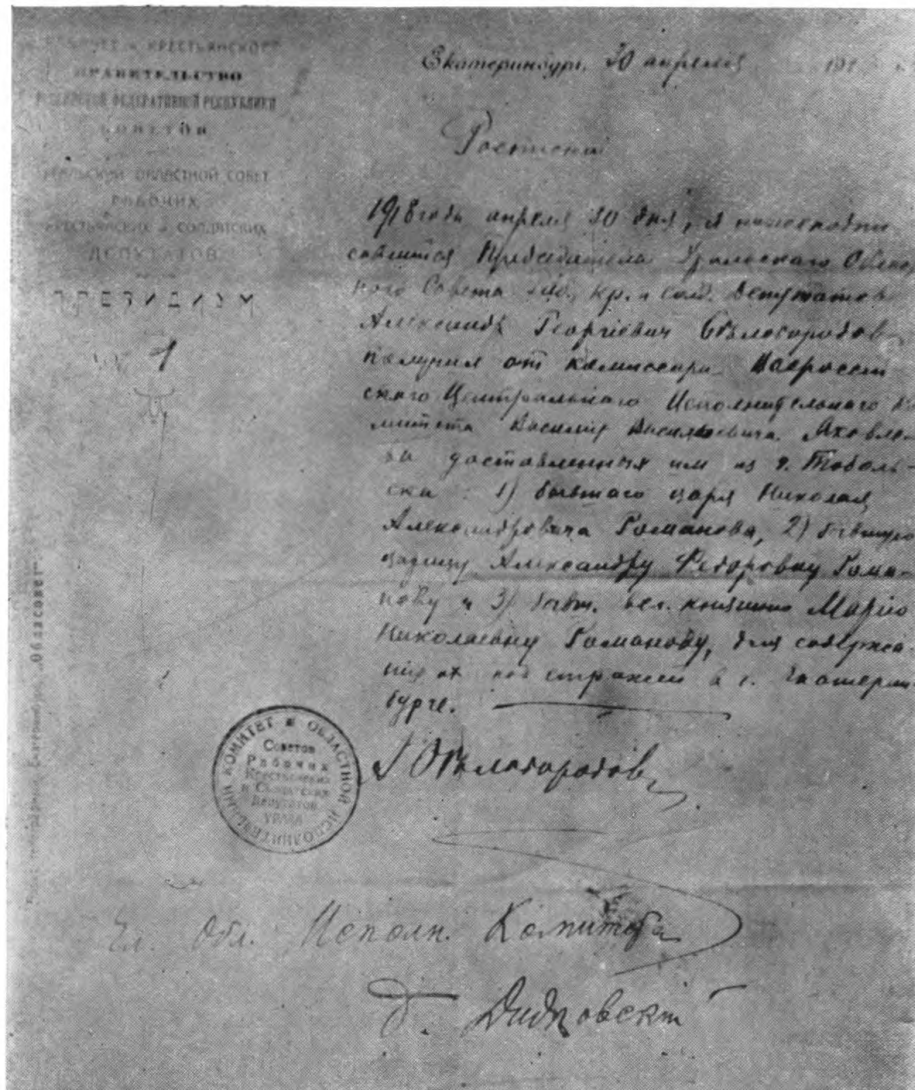 РАБОЧЕЕ и КРЕСТЬЯНСКОЕ
ПРАВИТЕЛЬСТВО
РОССИЙСКОЙ ФЕДЕРАТИВНОЙ РЕСПУБЛИКИ
СОВЕТОВ
УРАЛЬСКИЙ ОБЛАСТНОЙ СОВЕТ
РАБОЧИХ
КРЕСТЬЯНСКИХ и СОЛДАТСКИХ
ДЕПУТАТОВ
ПРЕЗИДИУМ
№ 1
Екатеринбург. 30 апреля 191
Расписка
1918 года апреля 30 дня, я нижеподпи
савшийся Председатель Уральского Област
ного Совета раб., кр. и солд. Депутатов
Александр Георгіевич Бѣлобородов
получил от комиссара Всероссій
скаго Центральнаго Исполнительнаго Ко
митета Василія Васильевича Яковле
ва доставленных им из г. Тоболь-
ска: 1) бывшаго царя Николая
Александровича Романова, 2) бывшую
царицу Александру Федоровну Рома-
нову и 3) бывш. вел. княжну Марію
Николаевну Романову, для содержа-
нія их под стражей в г. Екатерин
бурге.
А Бѣлобородов
ОБЛАСТНОЙ ИСПОЛНИТЕЛЬНЫЙ КОМИТЕТ
Советов
Рабочих
Крестьянских
и Солдатских
Депутатов
УРАЛА
Чл. Обл. Исполн. Комитета
Б. Дидковскій